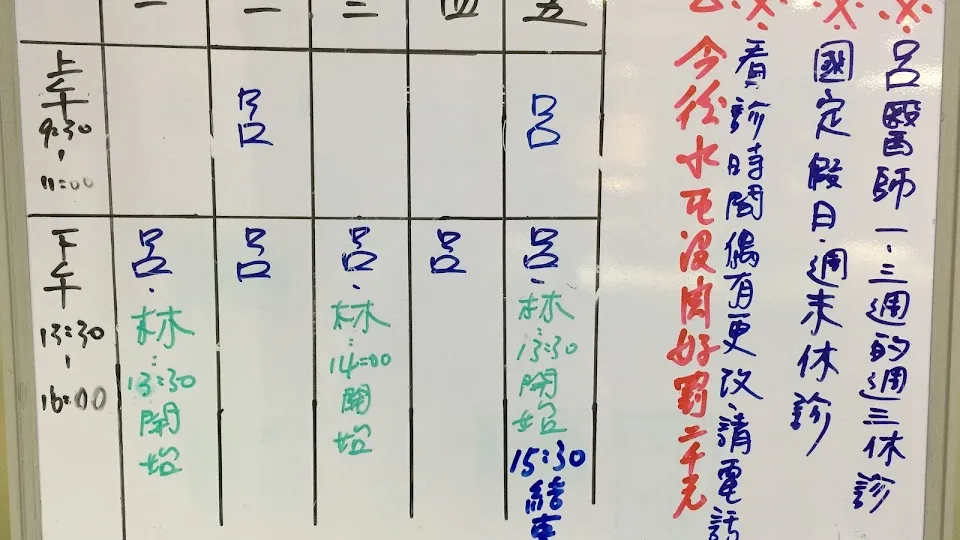 一 二 三 四 五
上午 9:30 - 11:00
呂 呂
下午 13:30 - 16:00
呂、林:13:30開始
呂
呂、林:14:00開始
呂
呂、林:13:30開始
15:30結束
※呂醫師一.三週的週三休診
※國定假日.週末休診
※看診時間偶有更改.請電話
今後水电沒関好罰二千元